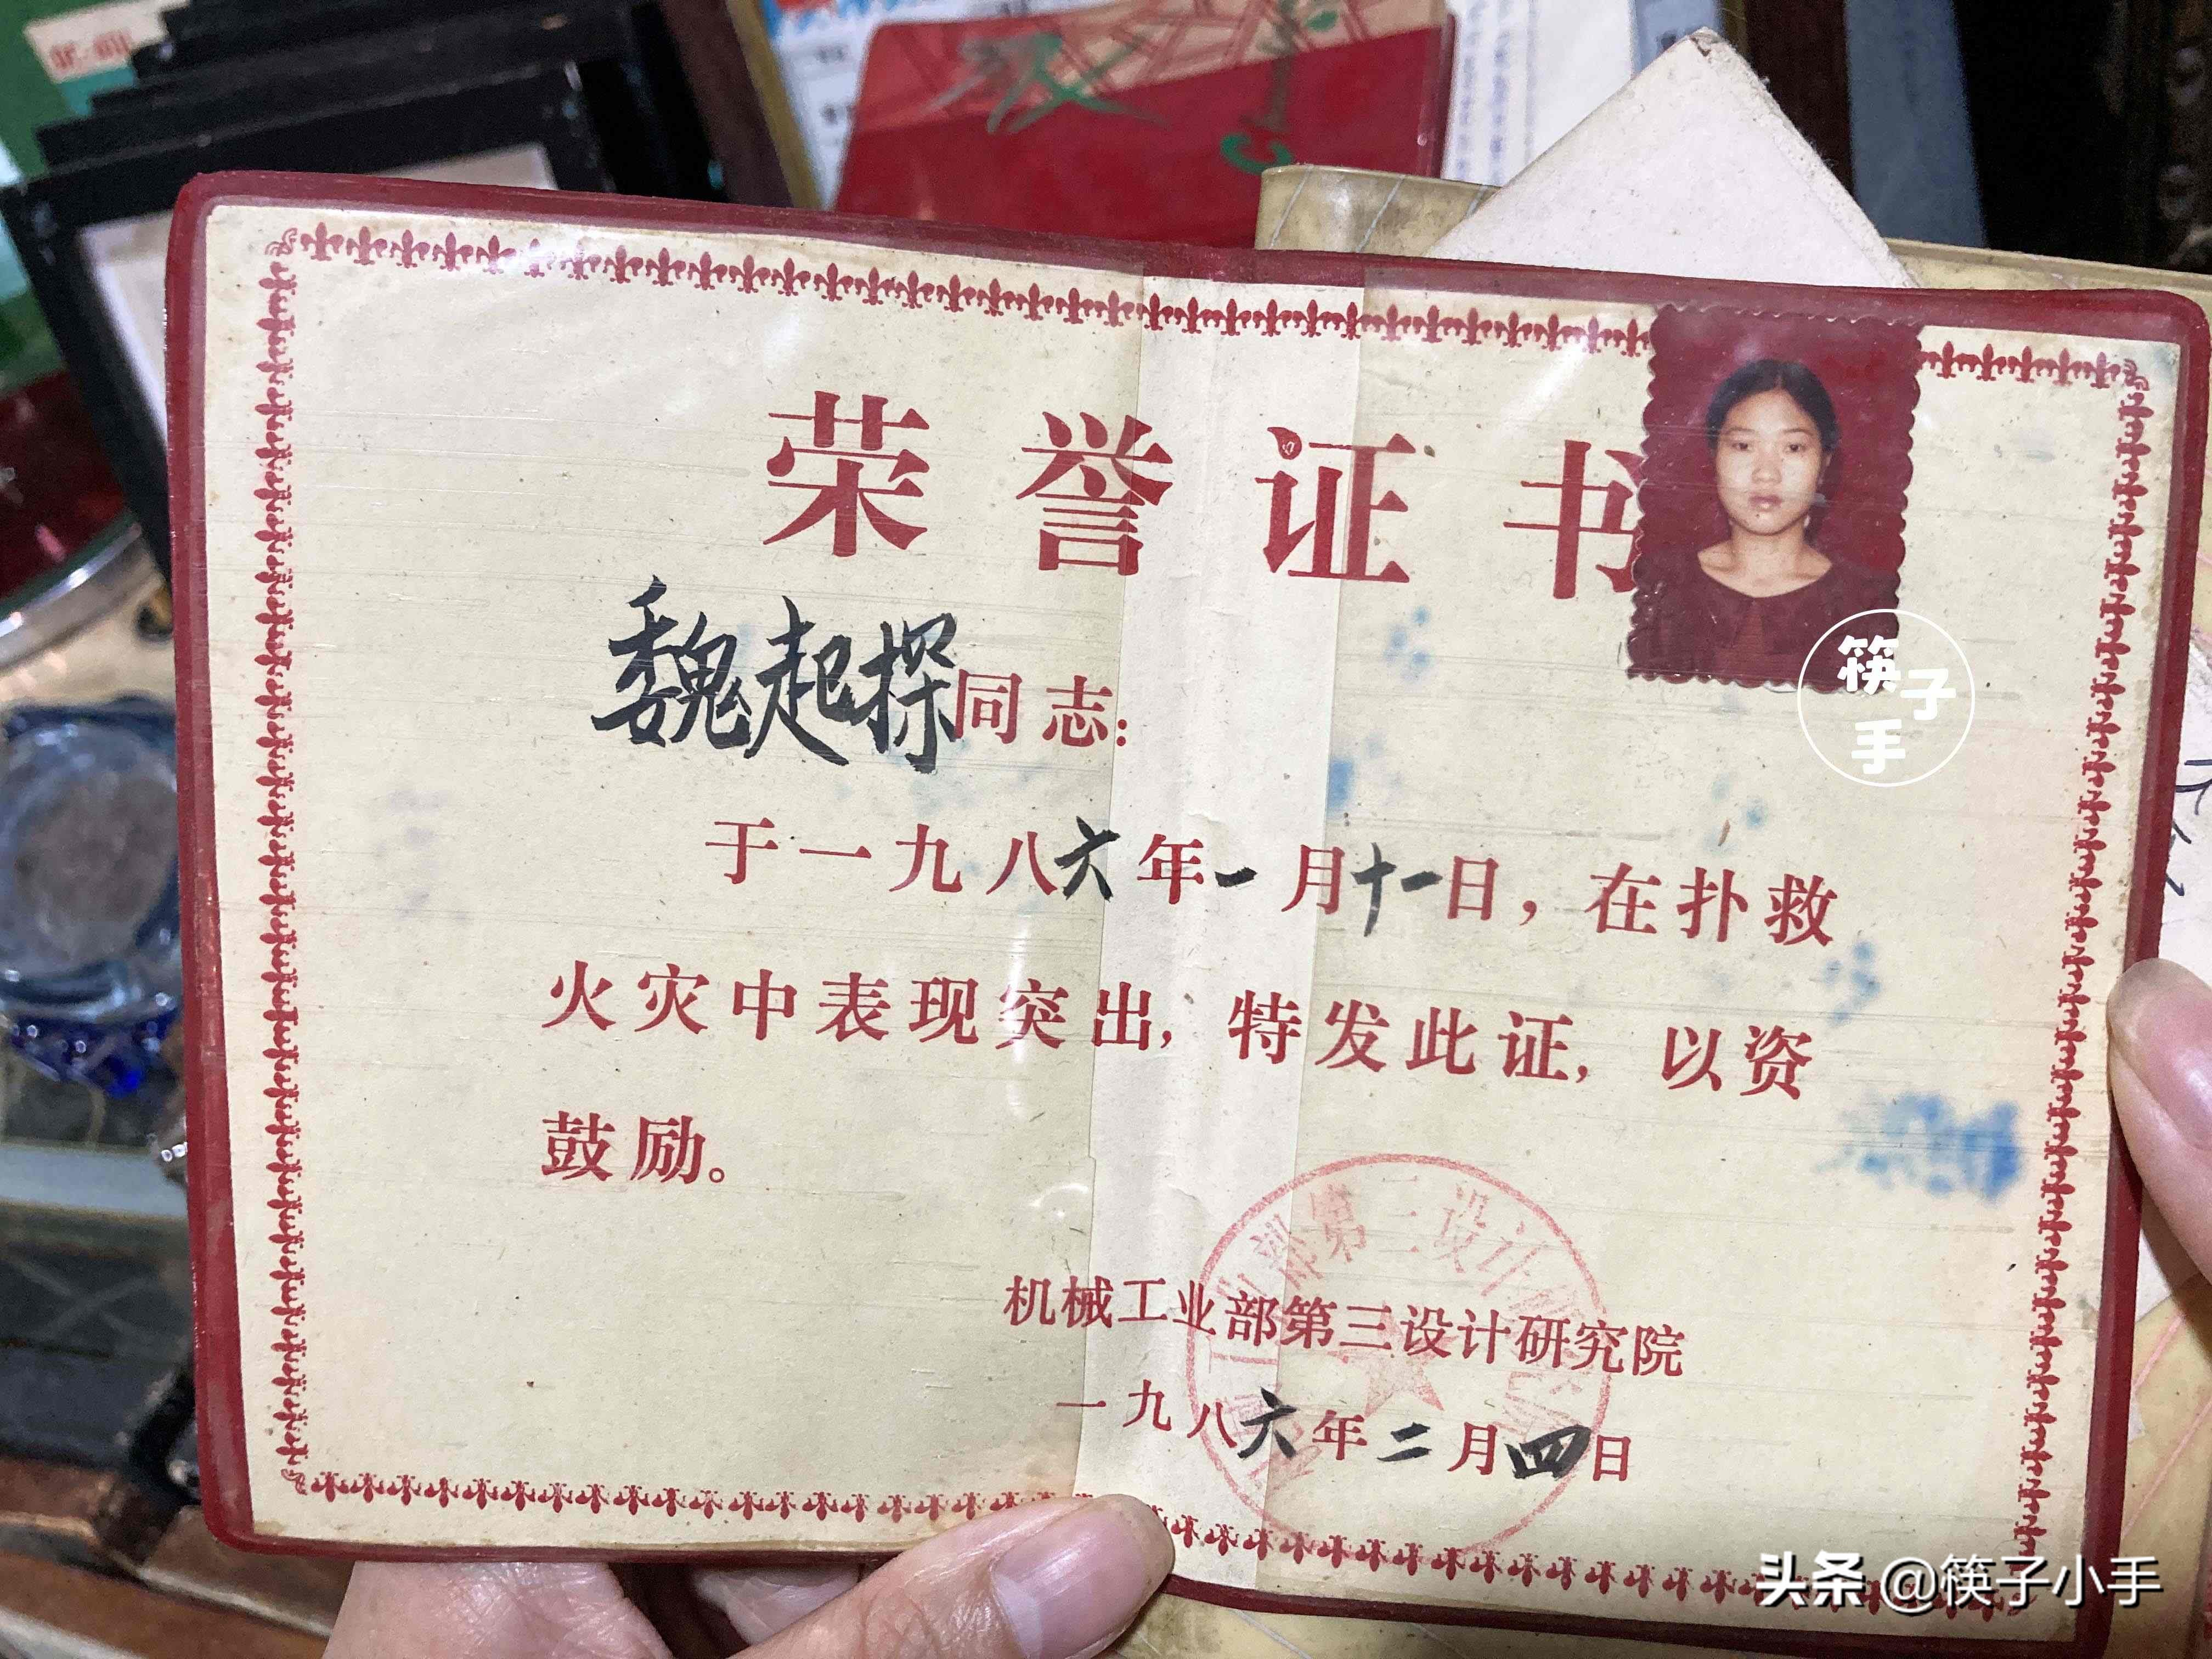 荣誉证书
魏起探同志:
于一九八六年一月十一日，在扑救
火灾中表现突出，特发此证，以资
鼓励。
机械工业部第三设计研究院
一九八六年二月四日
筷子
手
头条 @筷子小手